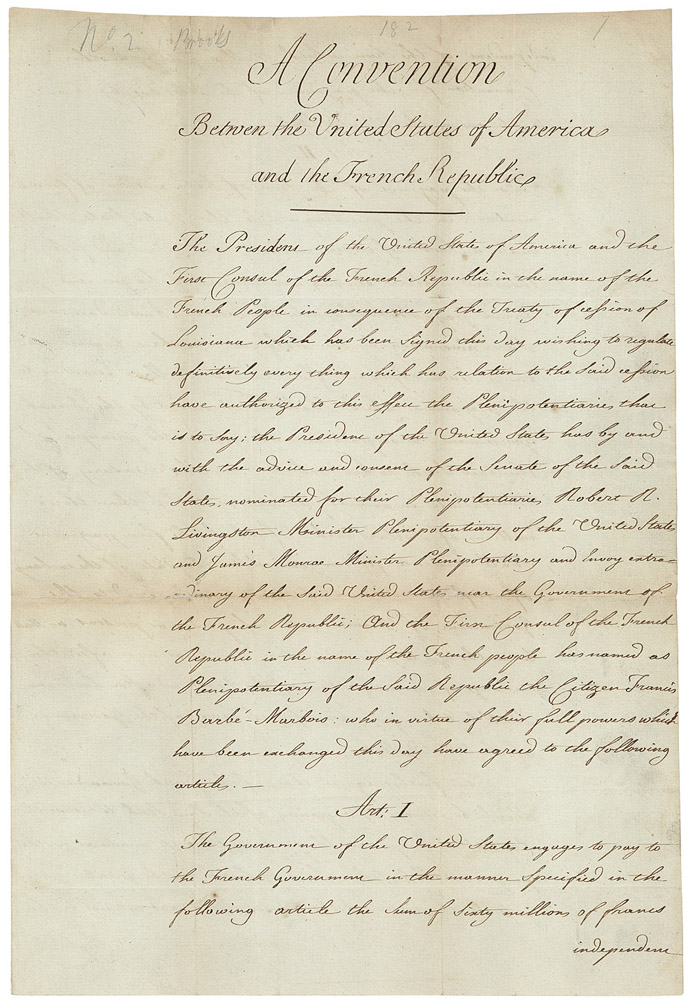 No. 2. 182 7
A Convention
Betwen the United States of America
and the French Republic
The President of the United States of America and the
First Consul of the French Republic in the name of the
French People in consequence of the Treaty of cession of
Louisiana which has been Signed this day wishing to regulate
definitively every thing which has relation to the Said cession
have authorized to this effect the Plenipotentiaries, that
is to say; the President of the United States, has by and
with the advice and consent of the Senate of the Said
States, nominated for their Plenipotentiaries, Robert R.
Livingston Minister Plenipotentiary of the United States
and James Monroe Minister Plenipotentiary and Envoy extra-
-dinary of the Said United States near the Government of
the French Republic; And the First Consul of the French
Republic in the name of the French people has named as
Plenipotentiary of the Said Republic the Citizen Francis
Barbé-Marbois: who in virtue of their full powers which
have been exchanged this day have agreed to the following
articles. —
Art: I
The Government of the United States engages to pay to
the French Government in the manner Specified in the
following article the Sum of Sixty millions of francs
independent